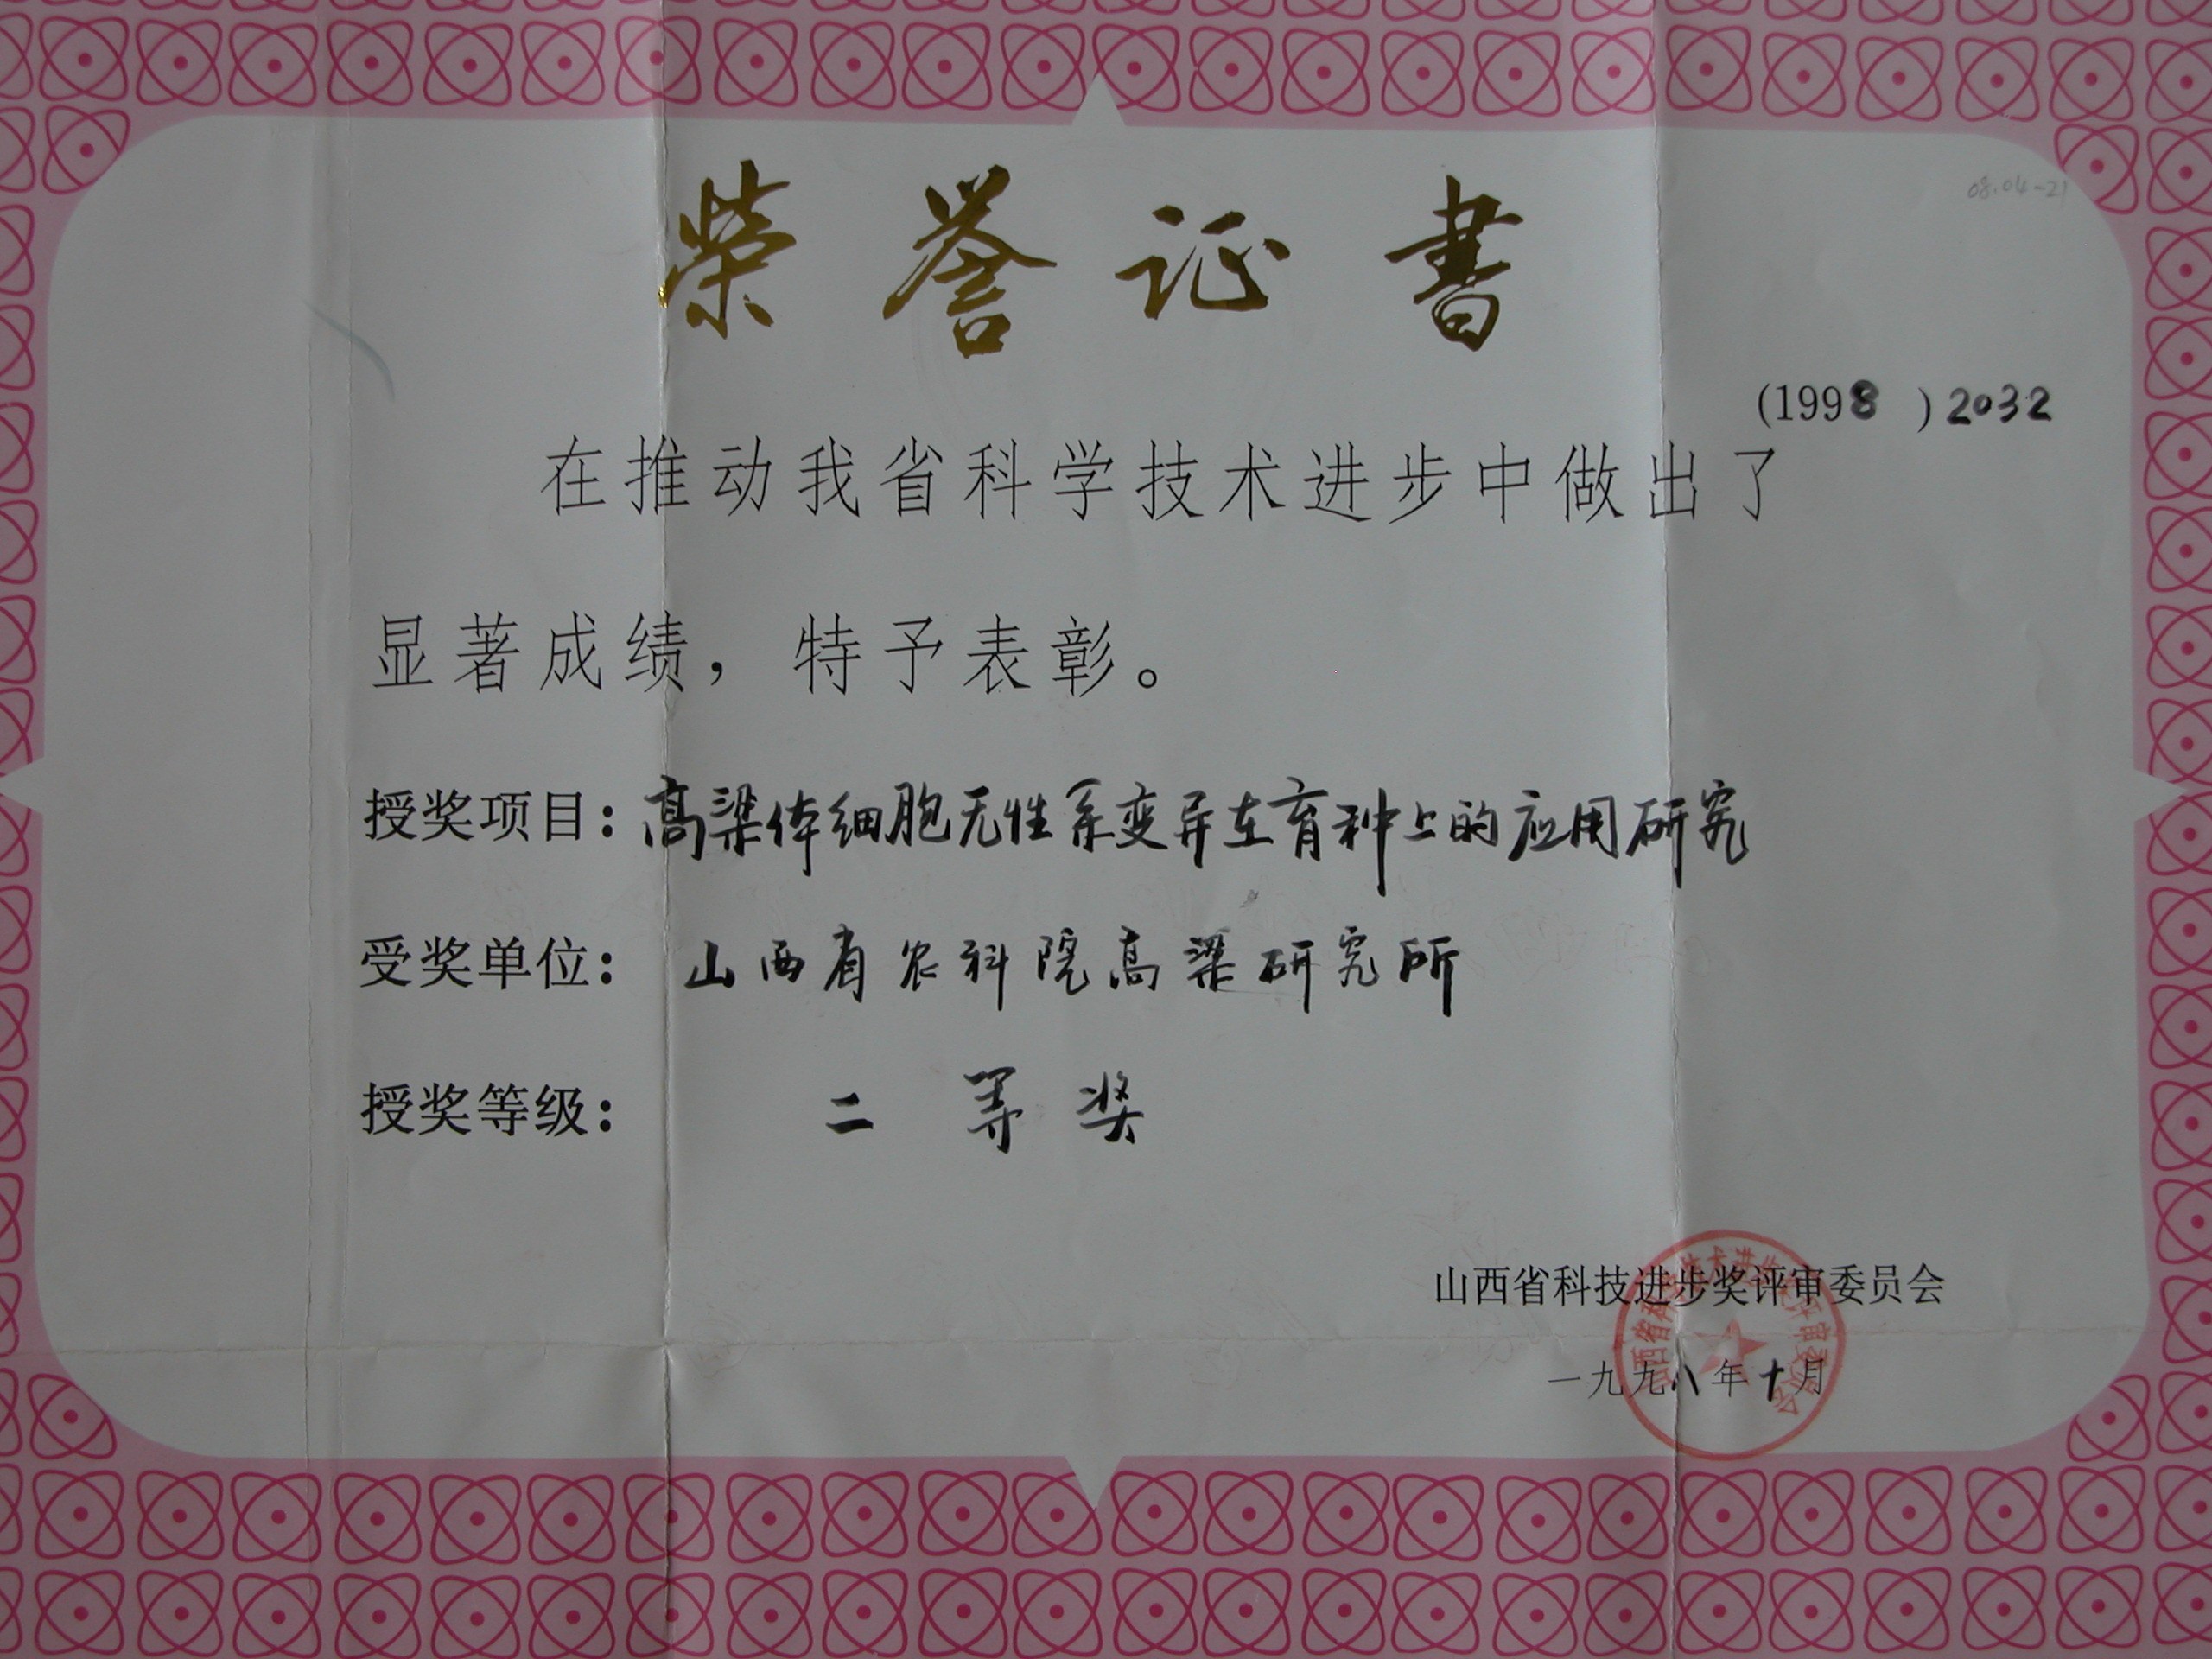 08.04-21
荣誉证書
(1998 ) 2032
在推动我省科学技术进步中做出了
显著成绩，特予表彰。
授奖项目：高粱体细胞无性系变异在育种上的应用研究
受奖单位：山西省农科院高粱研究所
授奖等级：二等奖
山西省科技进步奖评审委员会
一九九八年十月